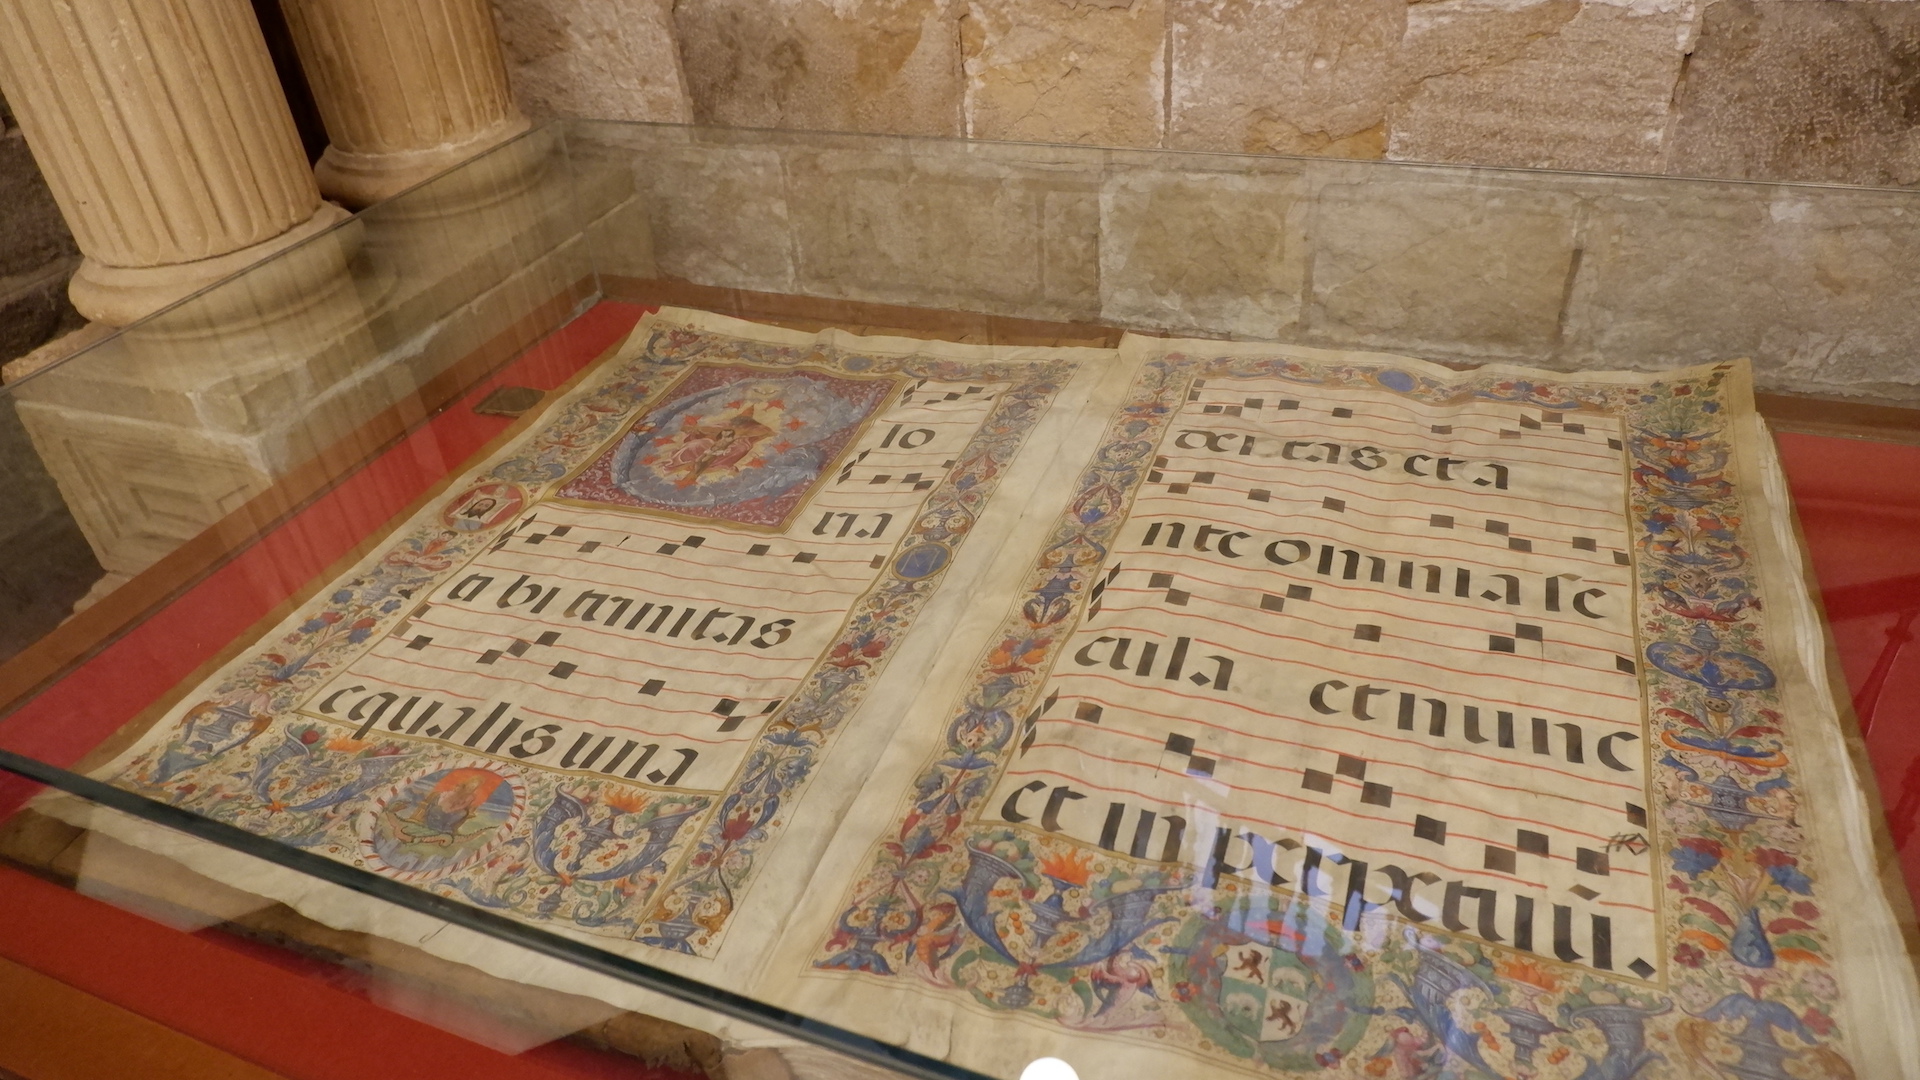 G lo
ria
ti bi trinitas
equalis una
dei tas et a
nte omnia se
cula et nunc
et in perpetuū.